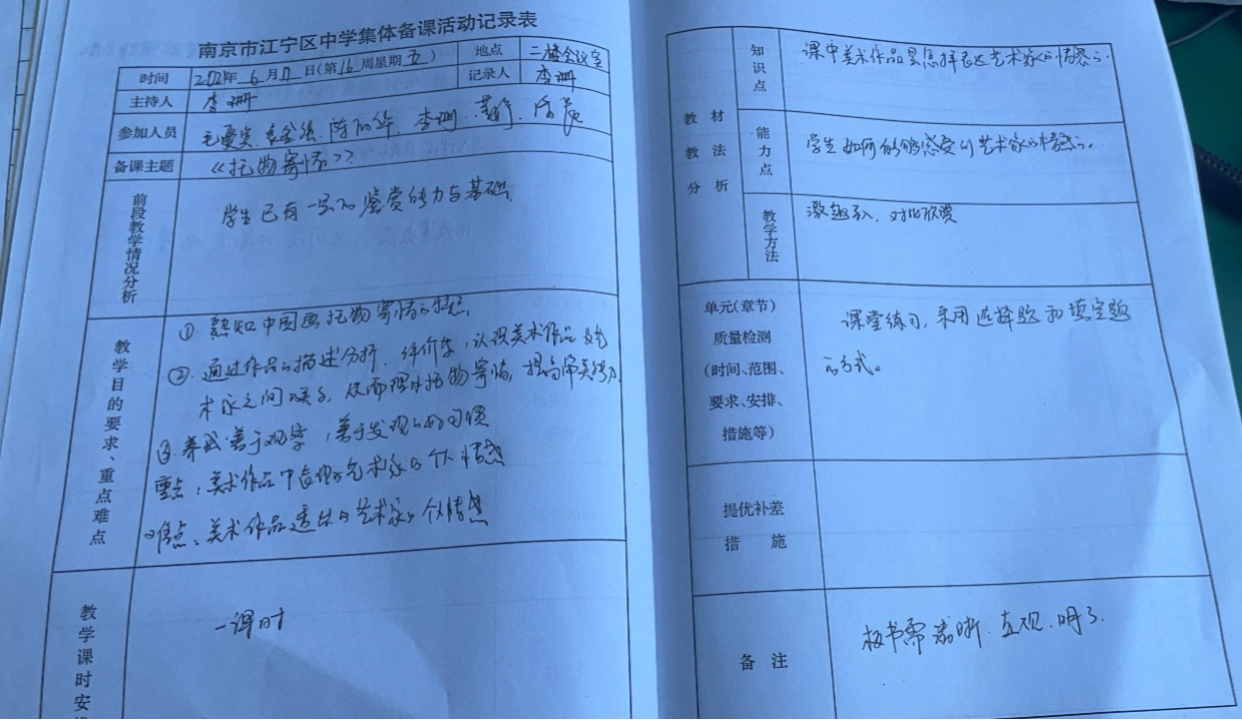 南京市江宁区中学集体备课活动记录表
时间 年 6 月 日(第 16 周星期 五) 地点 二楼会议室
主持人 李珊 记录人 李珊
参加人员 李珊
备课主题 《托物寄情》
前段教学情况分析 学生已有一定的鉴赏能力与基础
教学目的要求、重点难点
① 熟知中国画托物寄情的特点
② 通过作品的描述分析、评价等,认识美术作品与艺
术家之间的关系,从而理解托物寄情,提高审美能力
③ 养成善于观察,善于发现的好习惯
重点:美术作品中表现的艺术家的个人情感
难点:美术作品透出的艺术家的个人情感
教学课时安
一课时
教材教法分析
知识点 课中美术作品是怎样表达艺术家的情感的
能力点 学生如何能够感受到艺术家的情感的。
教学方法 激趣导入、对比欣赏
单元(章节)
质量检测
(时间、范围、
要求、安排、
措施等)
课堂练习,采用选择题和填空题
的方式。
提优补差
措 施
备 注 板书需清晰、直观、明了